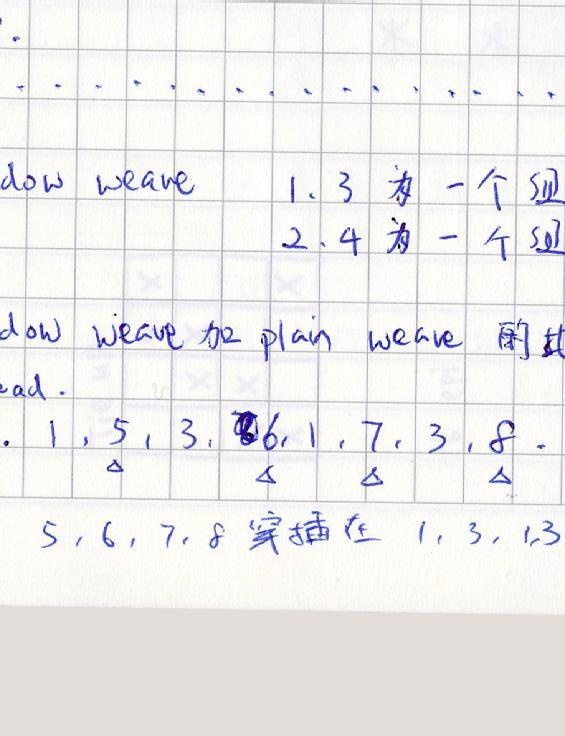 dow weave 1.3 为一个组
2.4 为一个组
dow weave 加 plain weave 的
ead.
. 1, 5, 3, 6, 1, 7, 3, 8.
5, 6, 7, 8 穿插在 1, 3, 1,3